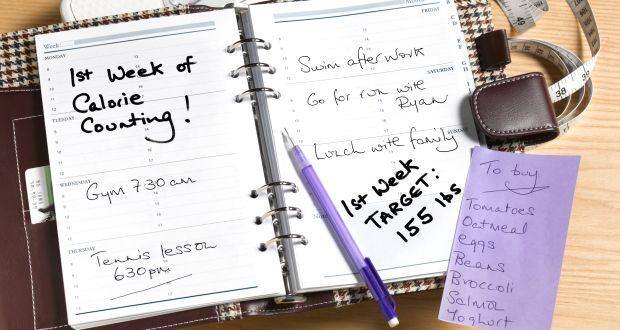 Week
MONDAY
1st Week of
Calorie
Counting !
TUESDAY
WEDNESDAY
Gym 7.30 am
THURSDAY
Tennis lesson
630pm
FRIDAY
Swim after work
SATURDAY
Go for run with
Ryan
SUNDAY
Lunch with family
Notes
1st Week
TARGET:
155 lbs
To buy
Tomatoes
Oatmeal
eggs
Beans
Broccoli
Salmon
Yoghurt
38